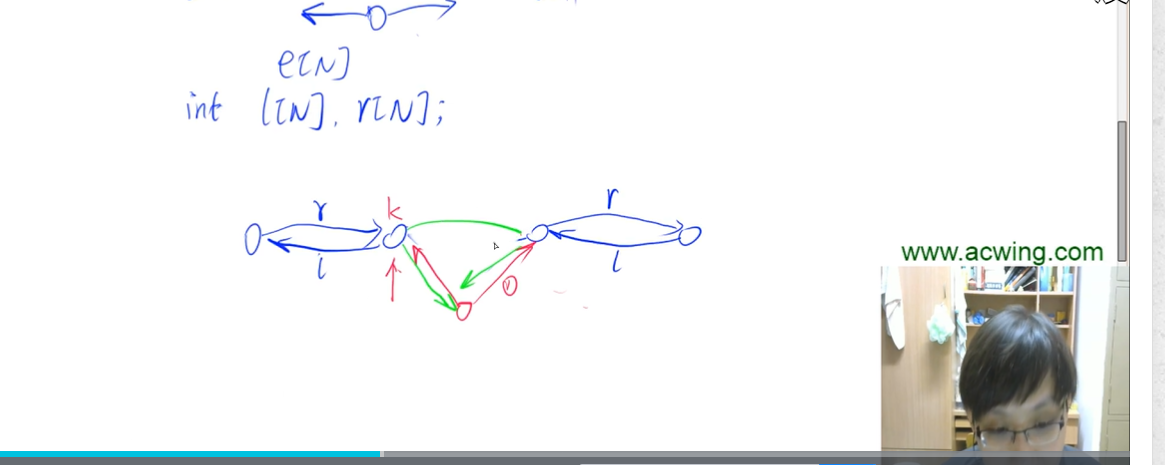 e[N]
int l[N], r[N];
r k r
l ① l
www.acwing.com